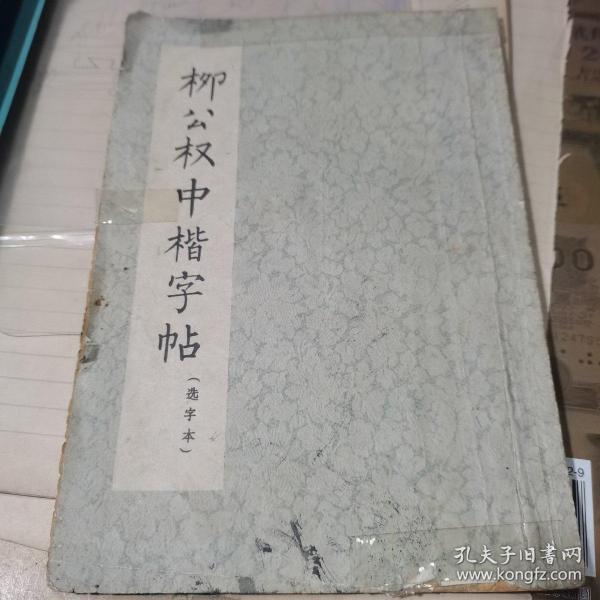 柳公权中楷字帖
（选字本）
2-9
00
孔夫子旧书网
www.kongfz.com